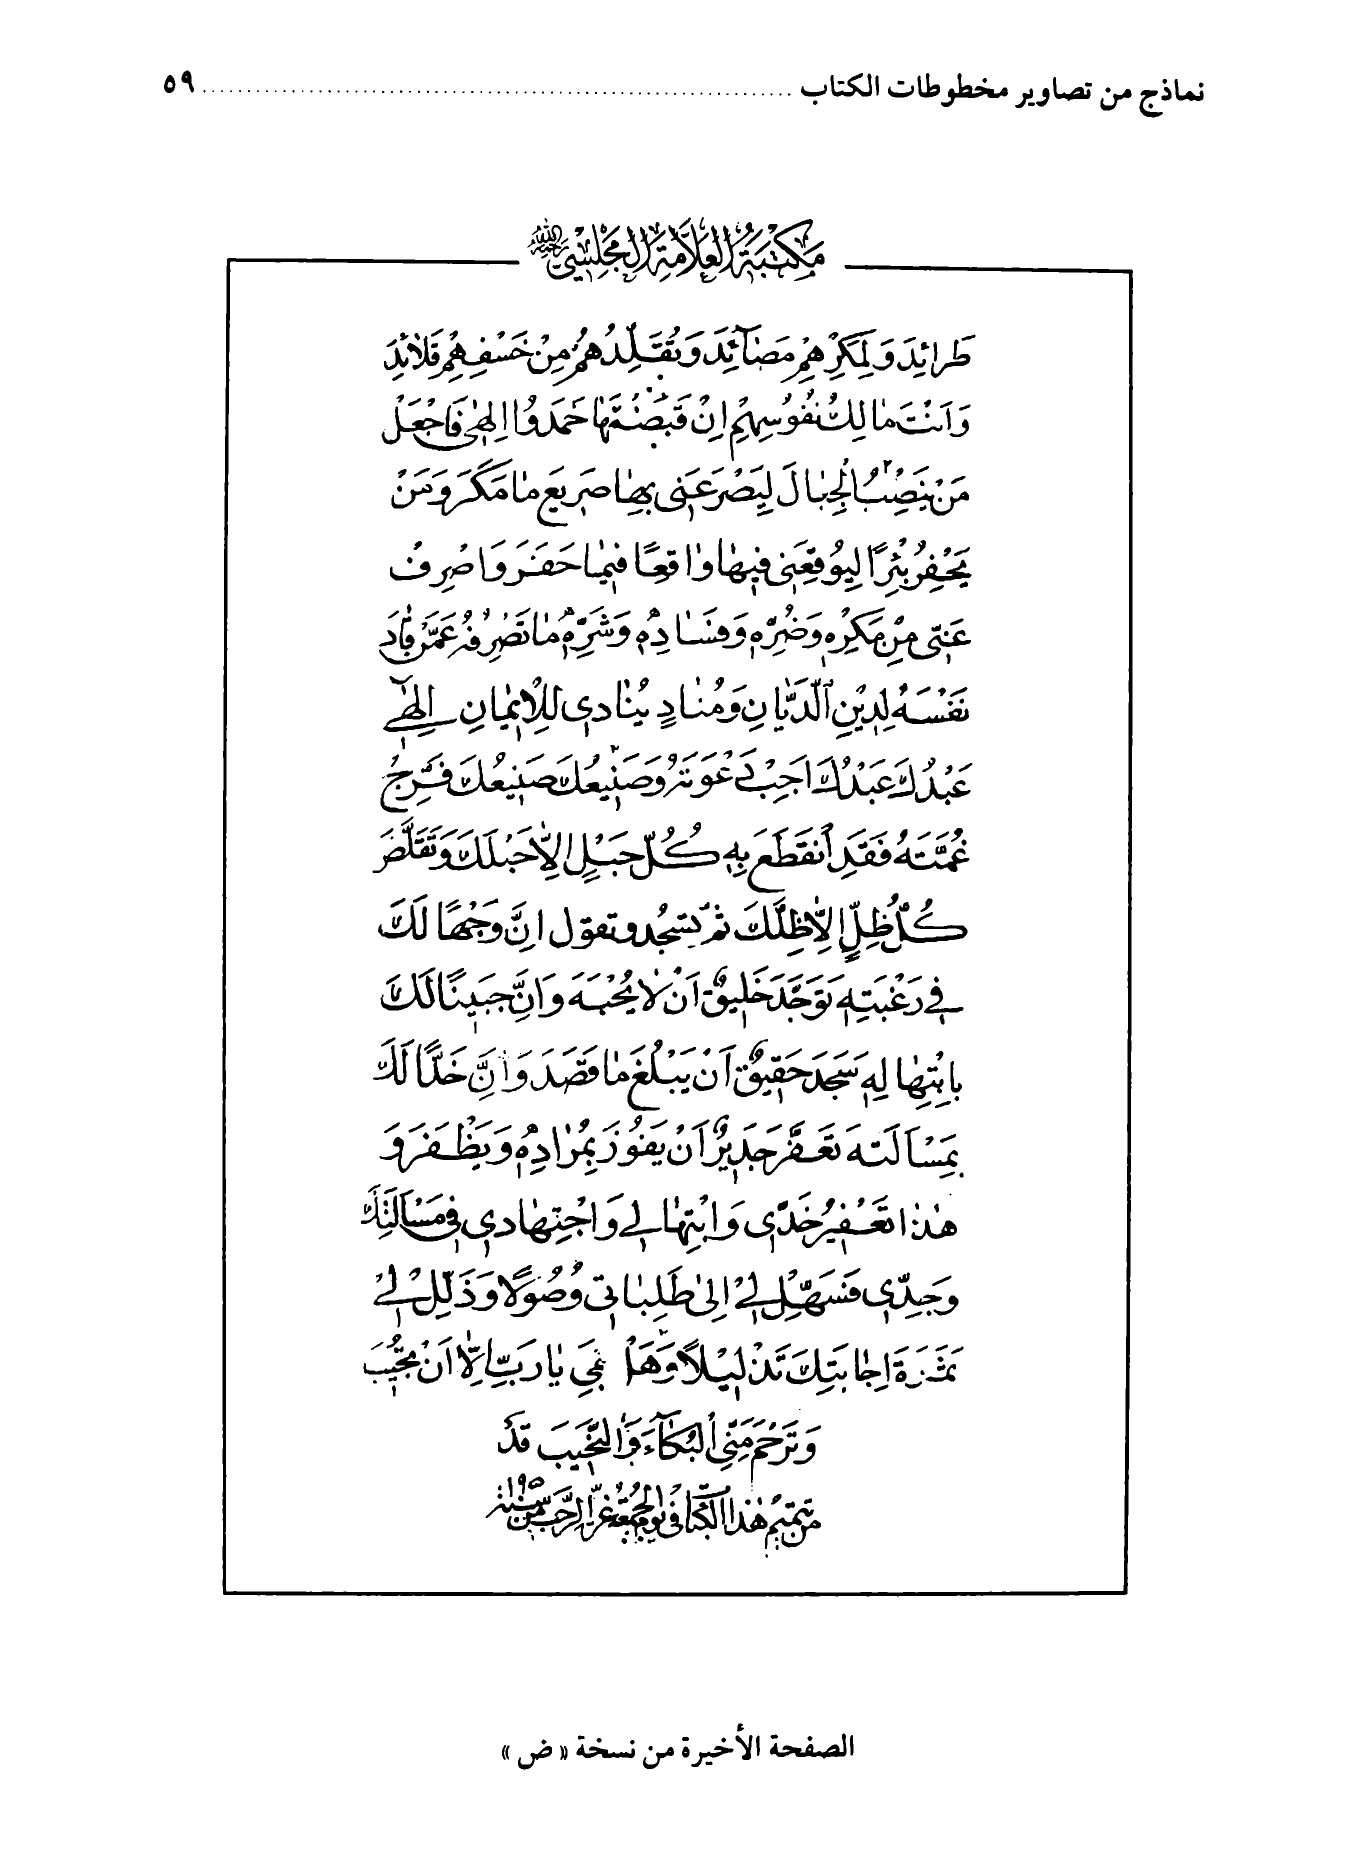 نماذج من تصاوير مخطوطات الكتاب ................................ ٥٩
مَكْتَبَةُ العَلَّامَةِ المَجْلِسِيّ رحمه الله
طَرائِدَ وَلِمَكْرِهِمْ مَصَآئِدَ وَتُقَلِّدُهُمْ مِنْ خَسْفِهِمْ قَلائِدَ
وَاَنْتَ مٰالِكُ نُفُوسِهِمْ اِنْ قَبَضْتَهٰا خَمَدُوا اِلهٰى فَاجْعَلْ
مَنْ يَنْصِبُ الْجِبٰالَ لِيَصْرَعَنى بِهٰا صَريعَ مٰا مَكَرَ وَمَنْ
يَحْفِرُ بِئْرًا لِيُوقِعَنى فيهٰا وٰاقِعًا فيمٰا حَفَرَ وَاصْرِفْ
عَنّى مِنْ مَكْرِهِ وَضُرِّهِ وَفَسٰادِهِ وَشَرِّهِ مٰا تَصْرِفُهُ عَمَّنْ قٰادَ
نَفْسَهُ لِدينِ الدَّيّٰانِ وَمُنٰادٍ يُنٰادى لِلْايمٰانِ اِلهٰي
عَبْدُكَ عَبْدُكَ اَجِبْ دَعْوَتَهُ وَصَنيعُكَ صَنيعُكَ فَرِّجْ
غُمَّتَهُ فَقَدِ انْقَطَعَ بِهِ كُلُّ حَبْلٍ اِلّٰا حَبْلَكَ وَتَقَلَّصَ
كُلُّ ظِلٍّ اِلّٰا ظِلَّكَ ثم تسجد وتقول اِنَّ وَجْهًا لَكَ
في رَغْبَتِهِ تَوَجَّدَ خَليقٌ اَنْ لٰا يُجْبَهَ وَاِنَّ جَبينًا لَكَ
بِابْتِهٰالِهِ سَجَدَ حَقيقٌ اَنْ يَبْلُغَ مٰا قَصَدَ وَاِنَّ خَدًّا لَكَ
بِمَسْاَلَتِهِ تَعَفَّرَ جَديرٌ اَنْ يَفُوزَ بِمُرٰادِهِ وَيَظْفَرَ وَ
هٰذٰا تَعْفيرُ خَدّى وَابْتِهٰالي وَاجْتِهٰادى فى مَسْاَلَتِكَ
وَجِدّى فَسَهِّلْ لي اِلىٰ طَلِبٰاتى وُصُولًا وَذَلِّلْ لي
ثَمَرَةَ اِجٰابَتِكَ تَذْليلًا وَهَلْ يٰا رَبِّ اِلّٰا اَنْ تُجيبَ
وَتَرْحَمَ مِنِّى الْبُكٰآءَ وَالنَّحيبَ قد
من تتميم هذا الكتاب فى يوم الجمعة غرة الرجب من سنة ١١٩٥
الصفحة الأخيرة من نسخة « ض »